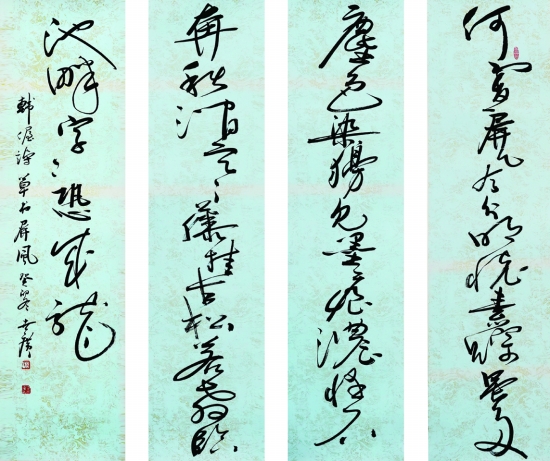 何處一屏風分明懷素蹤雖多
塵色染猶見墨痕濃怪石
奔秋澗寒藤挂古松若教臨
池畔字々恐成龍
韓偓詩草書屏風癸卯冬